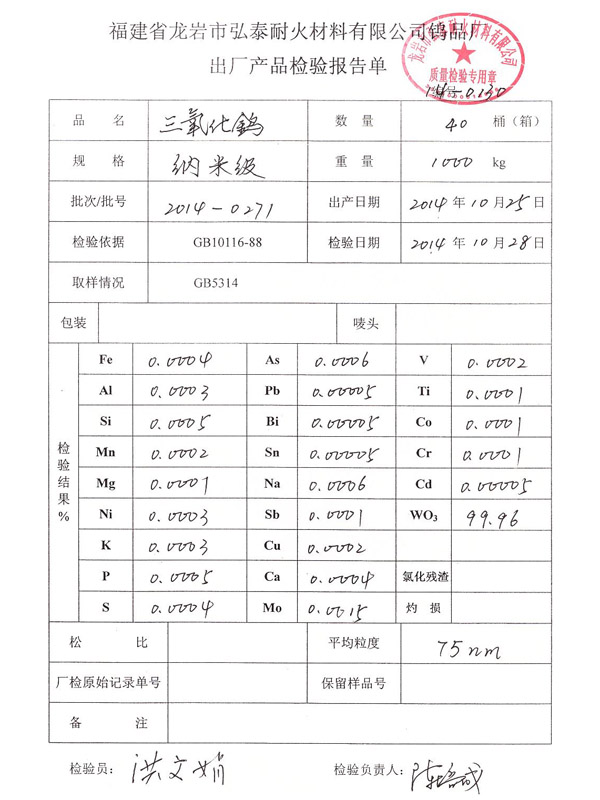 福建省龙岩市弘泰耐火材料有限公司钨品厂
出厂产品检验报告单
龙岩市弘泰耐火材料有限公司
质量检验专用章
14-0.130
品 名 三氧化鎢 数 量 40 桶（箱）
规 格 纳米级 重 量 1000 kg
批次/批号 2014-0271 出产日期 2014 年 10 月 25 日
检验依据 GB10116-88 检验日期 2014 年 10 月 28 日
取样情况 GB5314
包装 唛头
检验结果%
Fe 0.0004 As 0.0006 V 0.0002
Al 0.0003 Pb 0.00005 Ti 0.0001
Si 0.0005 Bi 0.00005 Co 0.0001
Mn 0.0002 Sn 0.00005 Cr 0.0001
Mg 0.0001 Na 0.0006 Cd 0.00005
Ni 0.0003 Sb 0.0001 WO₃ 99.96
K 0.0003 Cu 0.0002
P 0.0005 Ca 0.0004 氯化残渣
S 0.0004 Mo 0.0015 灼 损
松 比 平均粒度 75nm
厂检原始记录单号 保留样品号
备 注
检验员：洪文娟 检验负责人：陈